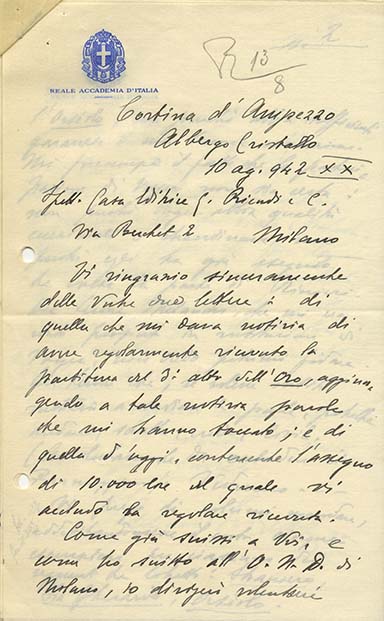 REALE ACCADEMIA D'ITALIA
R 13/8
Cortina d'Ampezzo
Albergo Cristallo
10 ag. 942 XX
Spett. Casa Editrice G. Ricordi e C.
Via Berchet 2 Milano
Vi ringrazio sinceramente
delle Vostre due lettere: di
quella che mi dava notizia di
avere regolarmente ricevuto la
partitura del 3º atto dell'Oro, aggiun
gendo a tale notizia parole
che mi hanno toccato; e di
quella d'oggi, contenente l'assegno
di 10.000 lire del quale vi
accludo la regolare ricevuta.
Come già scrissi a Voi, e
come ho scritto all'O.N.D. di
Milano, io dirigerei volentieri